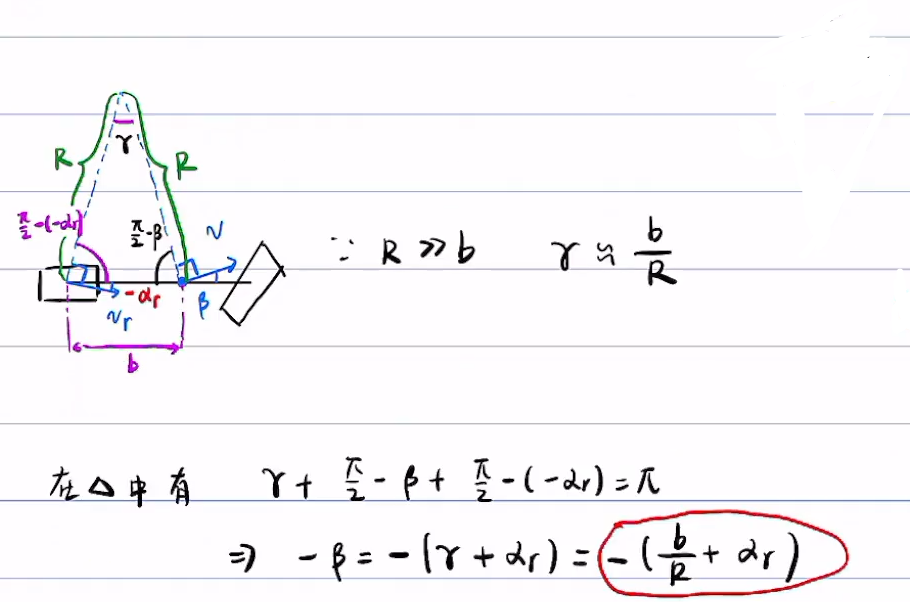 γ
R R
π/2-(-αr) π/2-β v
-αr β
vr
b
∵ R ≫ b γ ≈ b/R
在△中有 γ + π/2 - β + π/2 - (-αr) = π
⇒ -β = -(γ + αr) = -(b/R + αr)